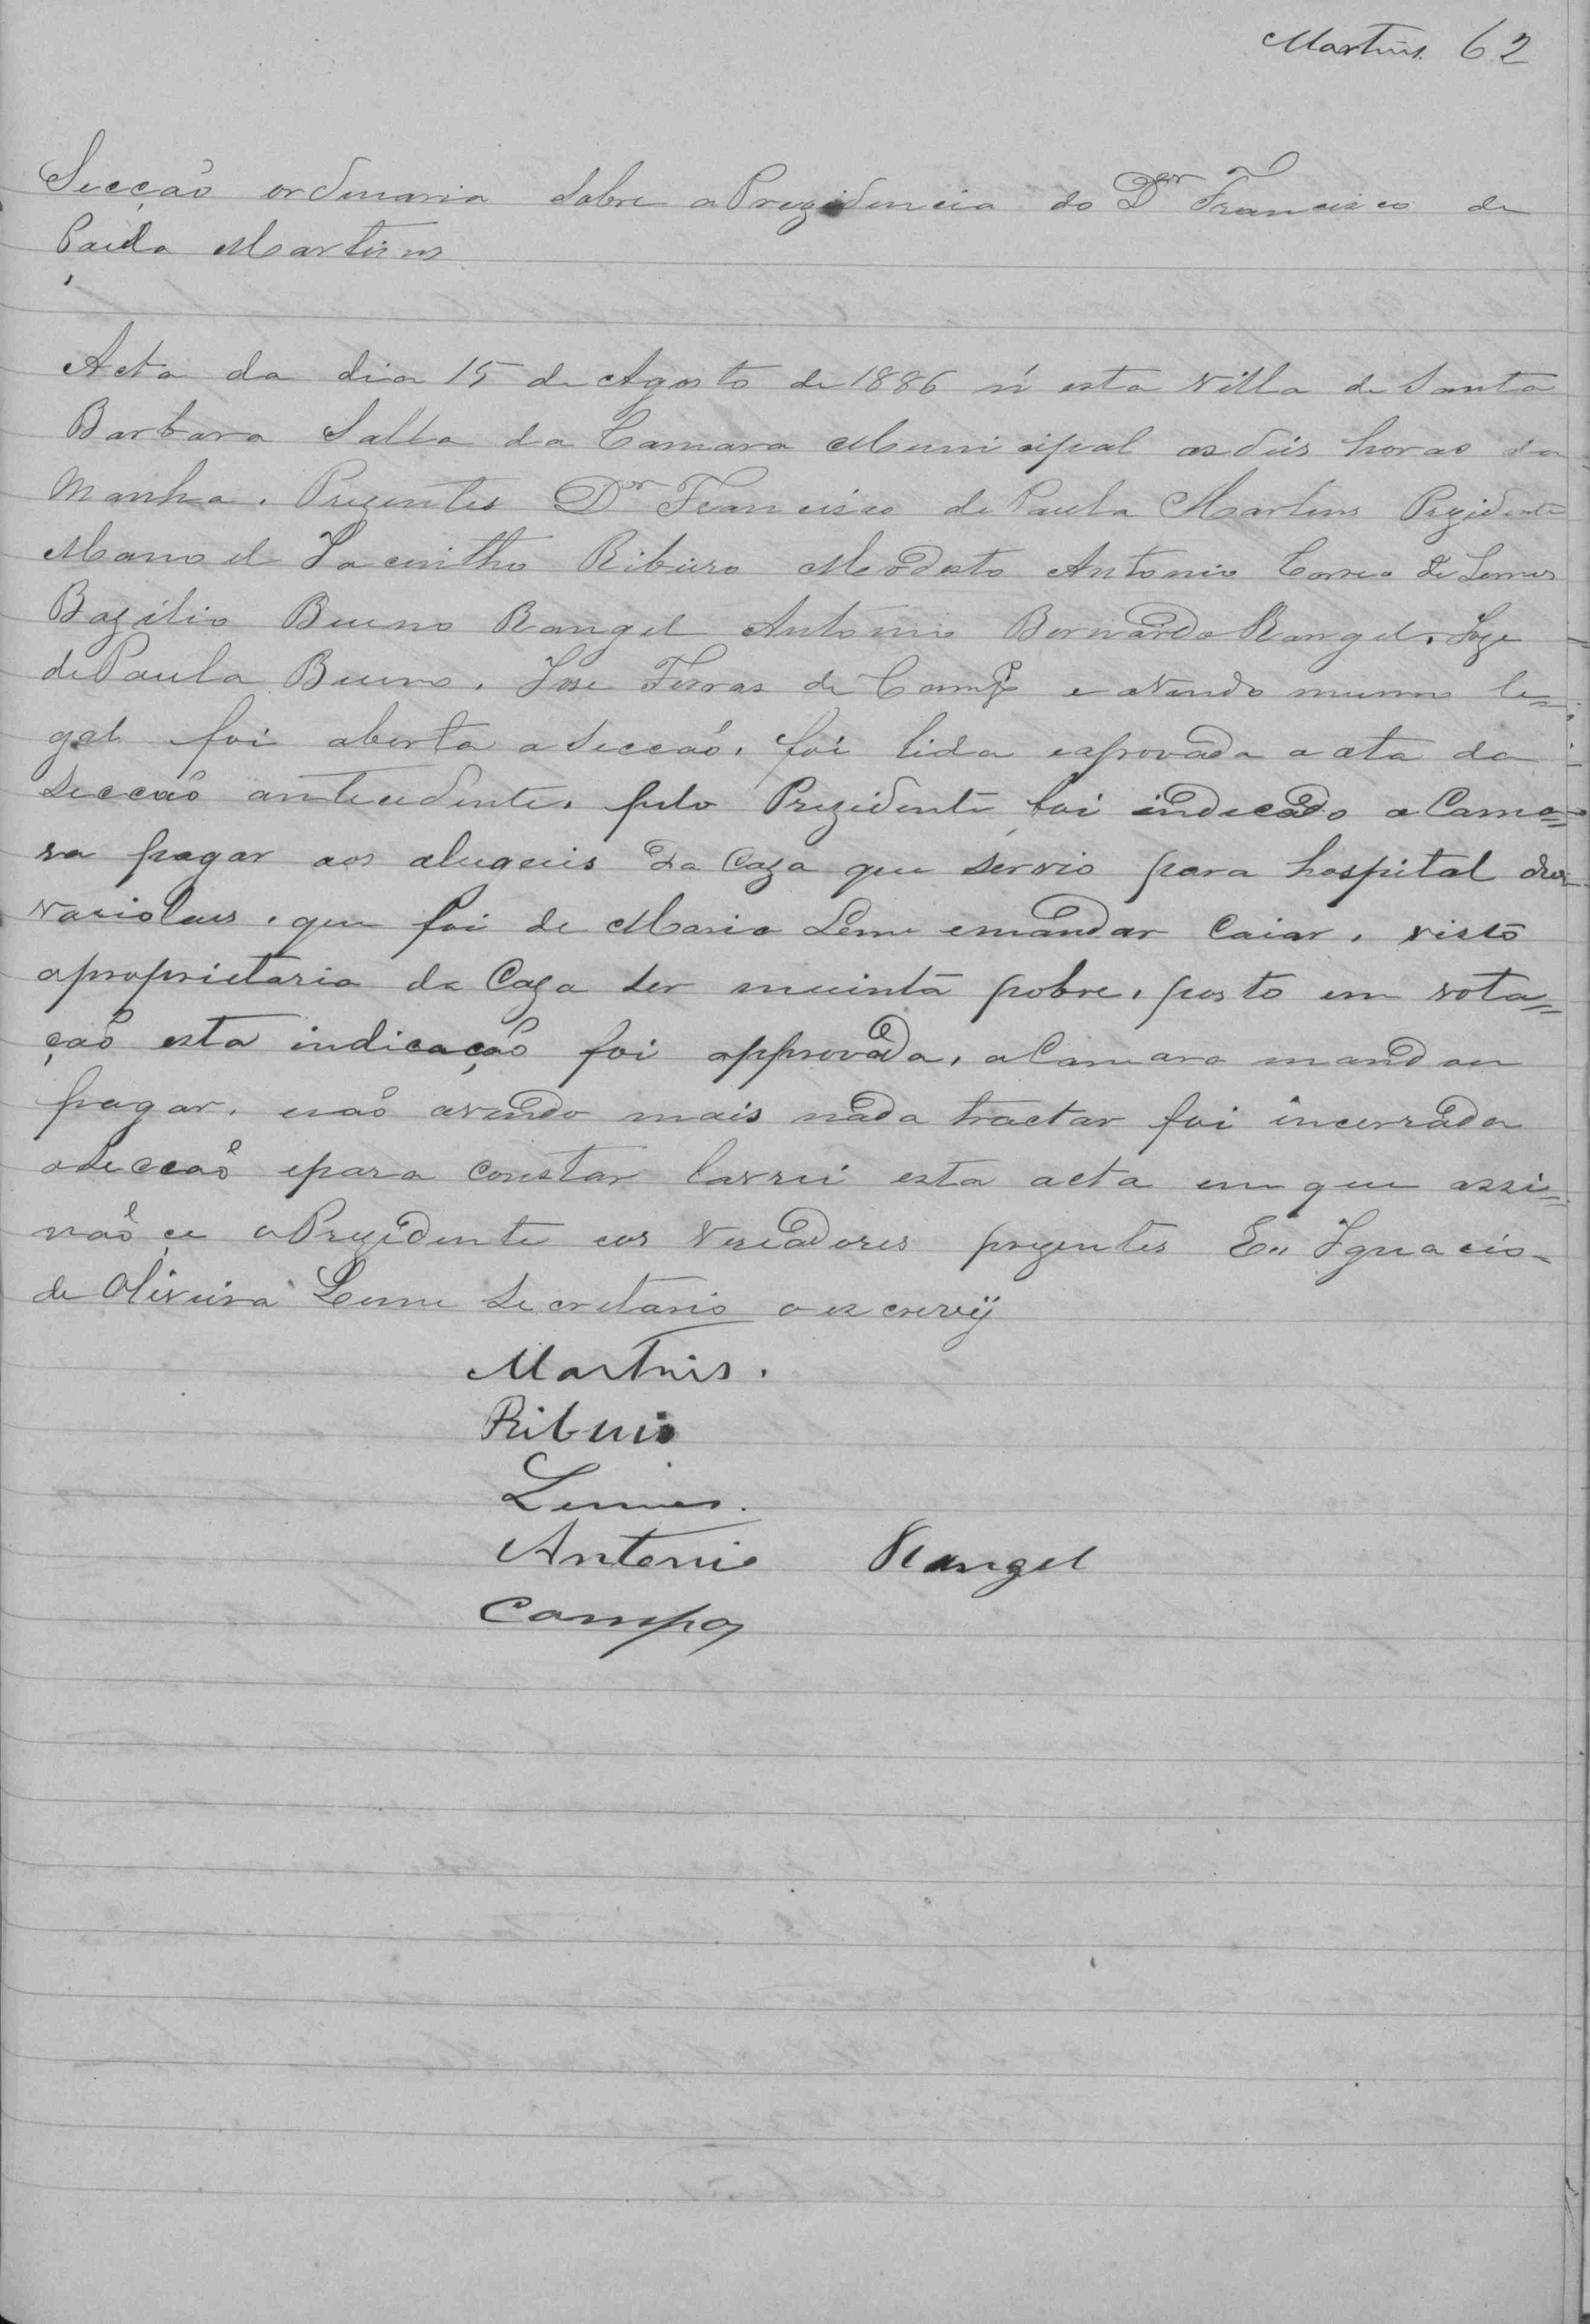 Martins. 62
Secção ordenaria Sobre a Prezidencia do Dor Francisco de
Paula Martins
Acta da dia 15 de Agosto de 1886 n'esta Villa de Santa
Barbara Salla da Camara Municipal as deis horas da
Manha. Prezentes Dor Francisco de Paula Martins Prezidente
Manoel Jacintho Ribeiro Modesto Antonio Correa de Lemes
Bazilio Bueno Rangel Antonio Bernardo Rangel. Joze
de Paula Bueno. Jose Ferras de Campos e avendo numero le=
gal foi aberta a Secçaó. foi lida e aprovada a ata da
Secçaõ antecedente. pelo Prezidente foi indecado a Cama=
ra pagar aos alugueis da Caza que servio para hospital dos
variolaes. que foi de Maria Leme e mandar Caiar. visto
a proprietaria da Caza ser muinta pobre. posto em vota=
çaõ esta indicaçaõ foi approvada. a Camara mandou
pagar. e naõ avendo mais nada tractar foi incerrada
a Secçaõ e para constar lavrei esta acta em que assi=
naõ ce o Prezidente e os Vereadores prezentes Eu Ignacio
de Oliveira Leme Secretario o escrevÿ
Martins.
Ribeiro
Lemes.
Antonio Rangel
Campos